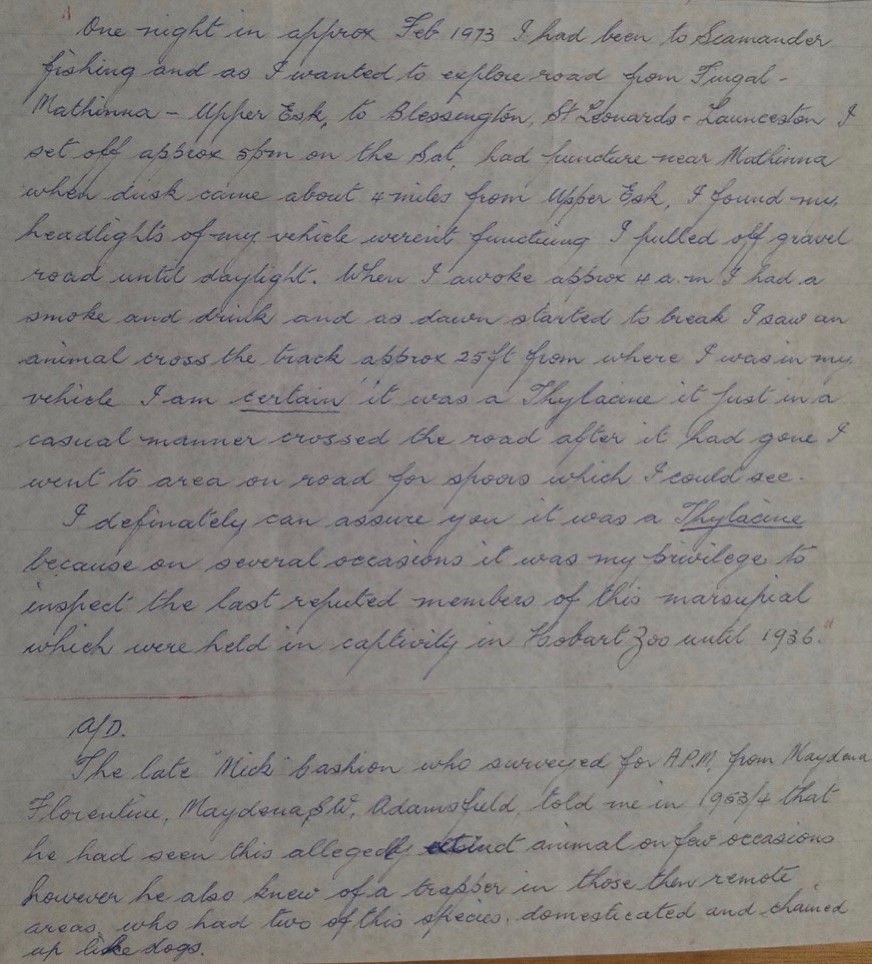 "One night in approx Feb 1973 I had been to Scamander
fishing and as I wanted to explore road from Fingal -
Mathinna - Upper Esk, to Blessington, St Leonards - Launceston I
set off approx 5pm on the Sat, had puncture near Mathinna
when dusk came about 4 miles from Upper Esk, I found my
headlights of my vehicle weren't functiing I pulled off gravel
road until daylight. When I awoke approx 4 a.m I had a
smoke and drink and as dawn started to break I saw an
animal cross the track approx 25ft from where I was in my
vehicle I am certain it was a Thylacine it just in a
casual manner crossed the road after it had gone I
went to area on road for spoors which I could see.
I definately can assure you it was a Thylacine
because on several occasions it was my privilege to
inspect the last reputed members of this marsupial
which were held in captivity in Hobart Zoo until 1936."
A/D.
The late "Mick" Cashion who surveyed for A.P.M. from Maydena
Florentine, Maydena, S.W, Adamsfield, told me in 1953/4 that
he had seen this allegedly extinct animal on few occasions
however he also knew of a trapper in those then remote
areas, who had two of this species, domesticated and chained
up like dogs.